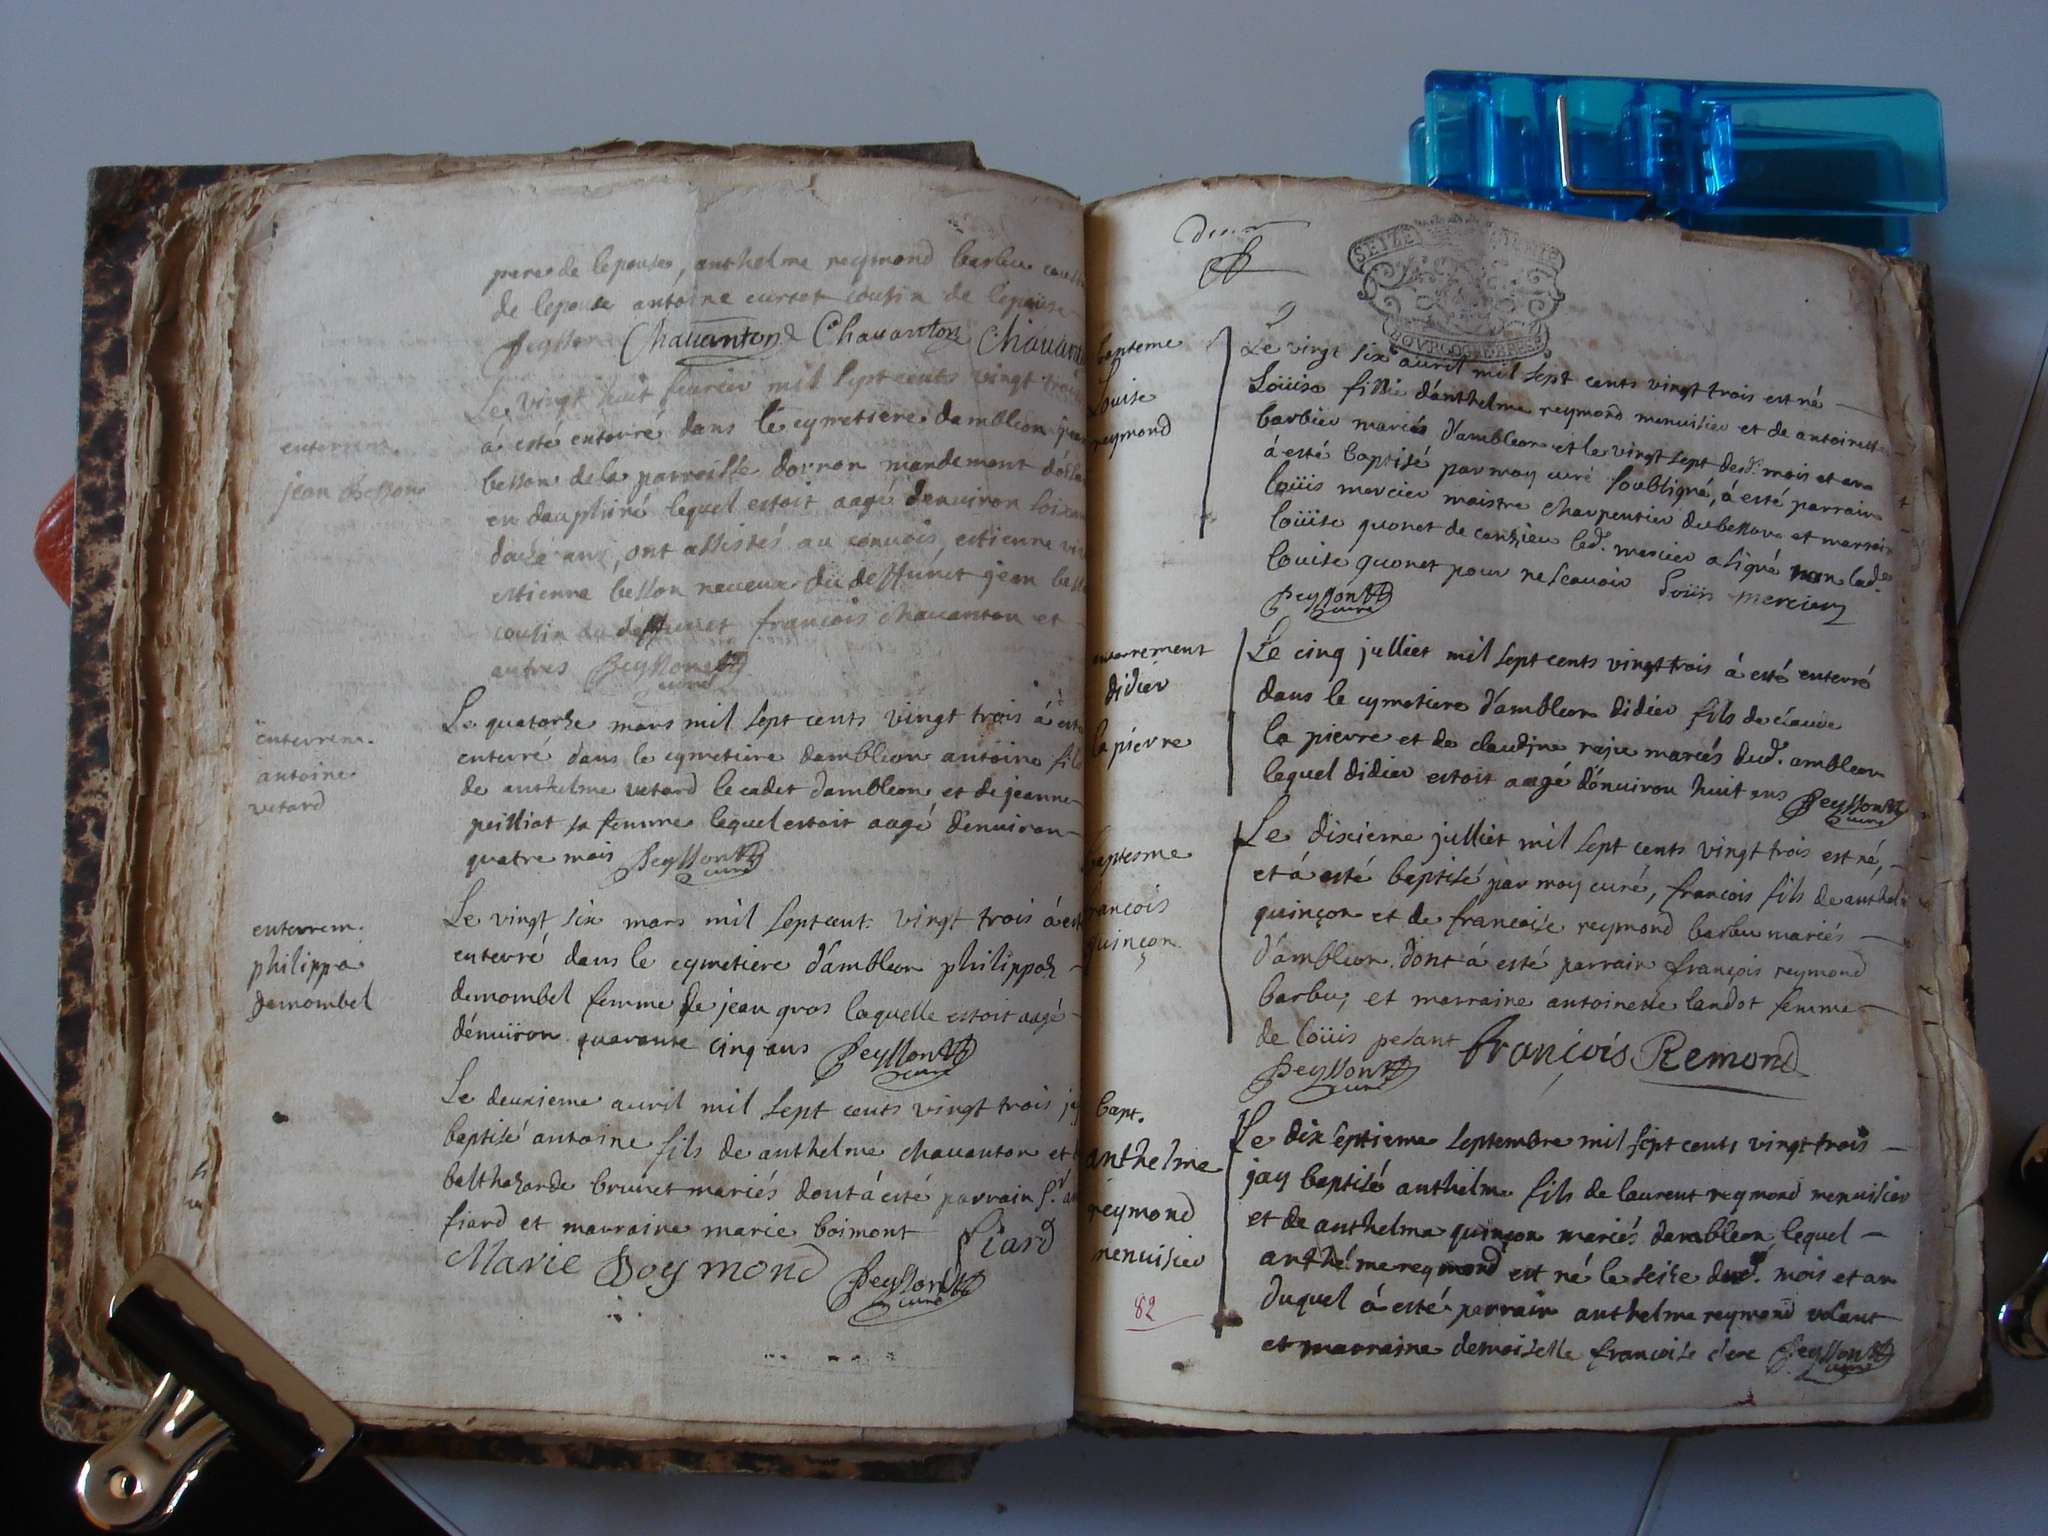 prere de lepouse, anthelme reymond barbu
de lepouse antoine curset cousin de lepouse
Peysson Chauanton Chauanton
Le vingt huit feurier mil sept cents vingt trois
á esté enterré dans le cymetiere dambleon
enterrem.
jean Besson
besson de la parroisse dornon mandement
en dauphiné lequel estoit aagé denuiron
ans, ont assistés au conuois, estienne
estienne besson neueux du deffunct jean
cousin du deffunct francois chauanton et
autres Peysson curé
enterrem.
antoine
vetard
Le quatorze mars mil sept cents vingt trois á
enterré dans le cymetiere dambleon antoine fils
de anthelme vetard le cadet dambleon et de jeanne
peilliot sa femme lequel estoit aagé denuiron
quatre mois Peysson curé
enterrem.
philippa
demombel
Le vingt six mars mil sept cent vingt trois á
enterré dans le cymetiere d'ambleon
demombel femme de jean gros laquelle estoit aagé
dénuiron quarante cinq ans Peysson curé
Le deuxieme auril mil sept cents vingt trois
baptisé antoine fils de anthelme chauanton et
balthazarde brunet mariés dont á esté parrain Sr.
fiard et marraine marie boimont
Marie Boymond Fiard
Peysson curé
SEIZE
bapteme
Louise
reymond
Le vingt six auril mil sept cents vingt trois est né
Loüise fillie d'anthelme reymond menuisier et de antoinette
barbier mariés d'ambleon et le vingt sept desd. mois et an
á esté baptisé par moy curé soubsigné, á esté parrain
Loüis mercier maistre charpentier du et marraine
loüise quonet de led. mercier a signé non lad.
louise quonet pour ne scauoir Loüis mercier
Peysson curé
enterrement
didier
la pierre
Le cinq julliet mil sept cents vingt trois á esté enterré
dans le cymetiere d'ambleon didier fils de claude
la pierre et de claudine mariés dud. ambleon
lequel didier estoit aagé d'énuiron huit ans Peysson curé
baptesme
francois
quinçon
Le dixieme julliet mil sept cents vingt trois est né,
et á esté baptisé par moy curé, francois fils de anthelme
quinçon et de francoise reymond barbu mariés
d'ambleon dont á esté parrain françois reymond
barbu, et marraine antoinette landot femme
de loüis pesant François Remond
Peysson curé
bapt.
anthelme
reymond
menuisier
82
Le dix septieme septembre mil sept cents vingt trois
jay baptisé anthelme fils de laurent reymond menuisier
et de anthelma quinçon mariés dambleon, lequel
anthelme reymond est né le seize dud. mois et an
duquel á esté parrain anthelme reymond volant
et marraine demoiselle francoise Peysson curé